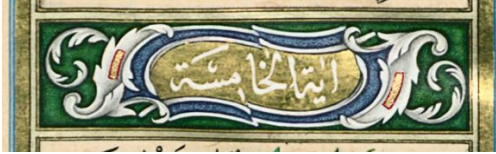 آية الخامسة